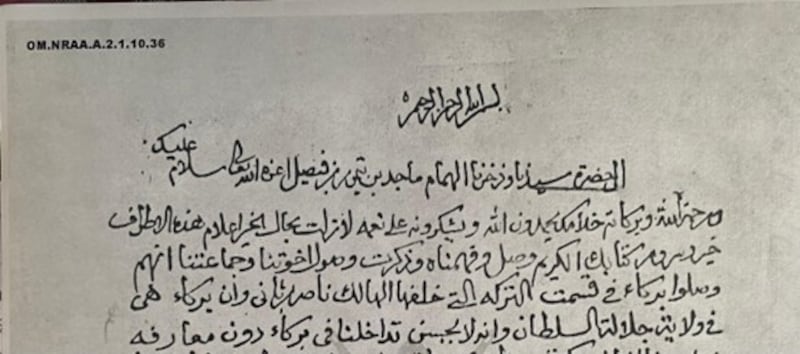 OM.NRAA.A.2.1.10.36
بسم الله الرحمن الرحيم
الى حضرة سيدنا وذخرنا الهمام ماجد بن تيمور بن فيصل اعزه الله تعالى سلام عليك
ورحمة الله وبركاته خدامك يحمدون الله ويشكرونه على نعمه لازلت بحال الخير اعلام هذه الاطراف
خير ومن كتابك الكريم وصل وفهمناه وذكرت وصول اخوتنا وجماعتنا انهم
وصلوا بركاء في قسمت التركه التي خلفها الهالك ناصر بن ثاني وأن بركاء هي
في ولاية جلالة السلطان وانه لا يحسن تداخلنا في بركاء دون معارفه